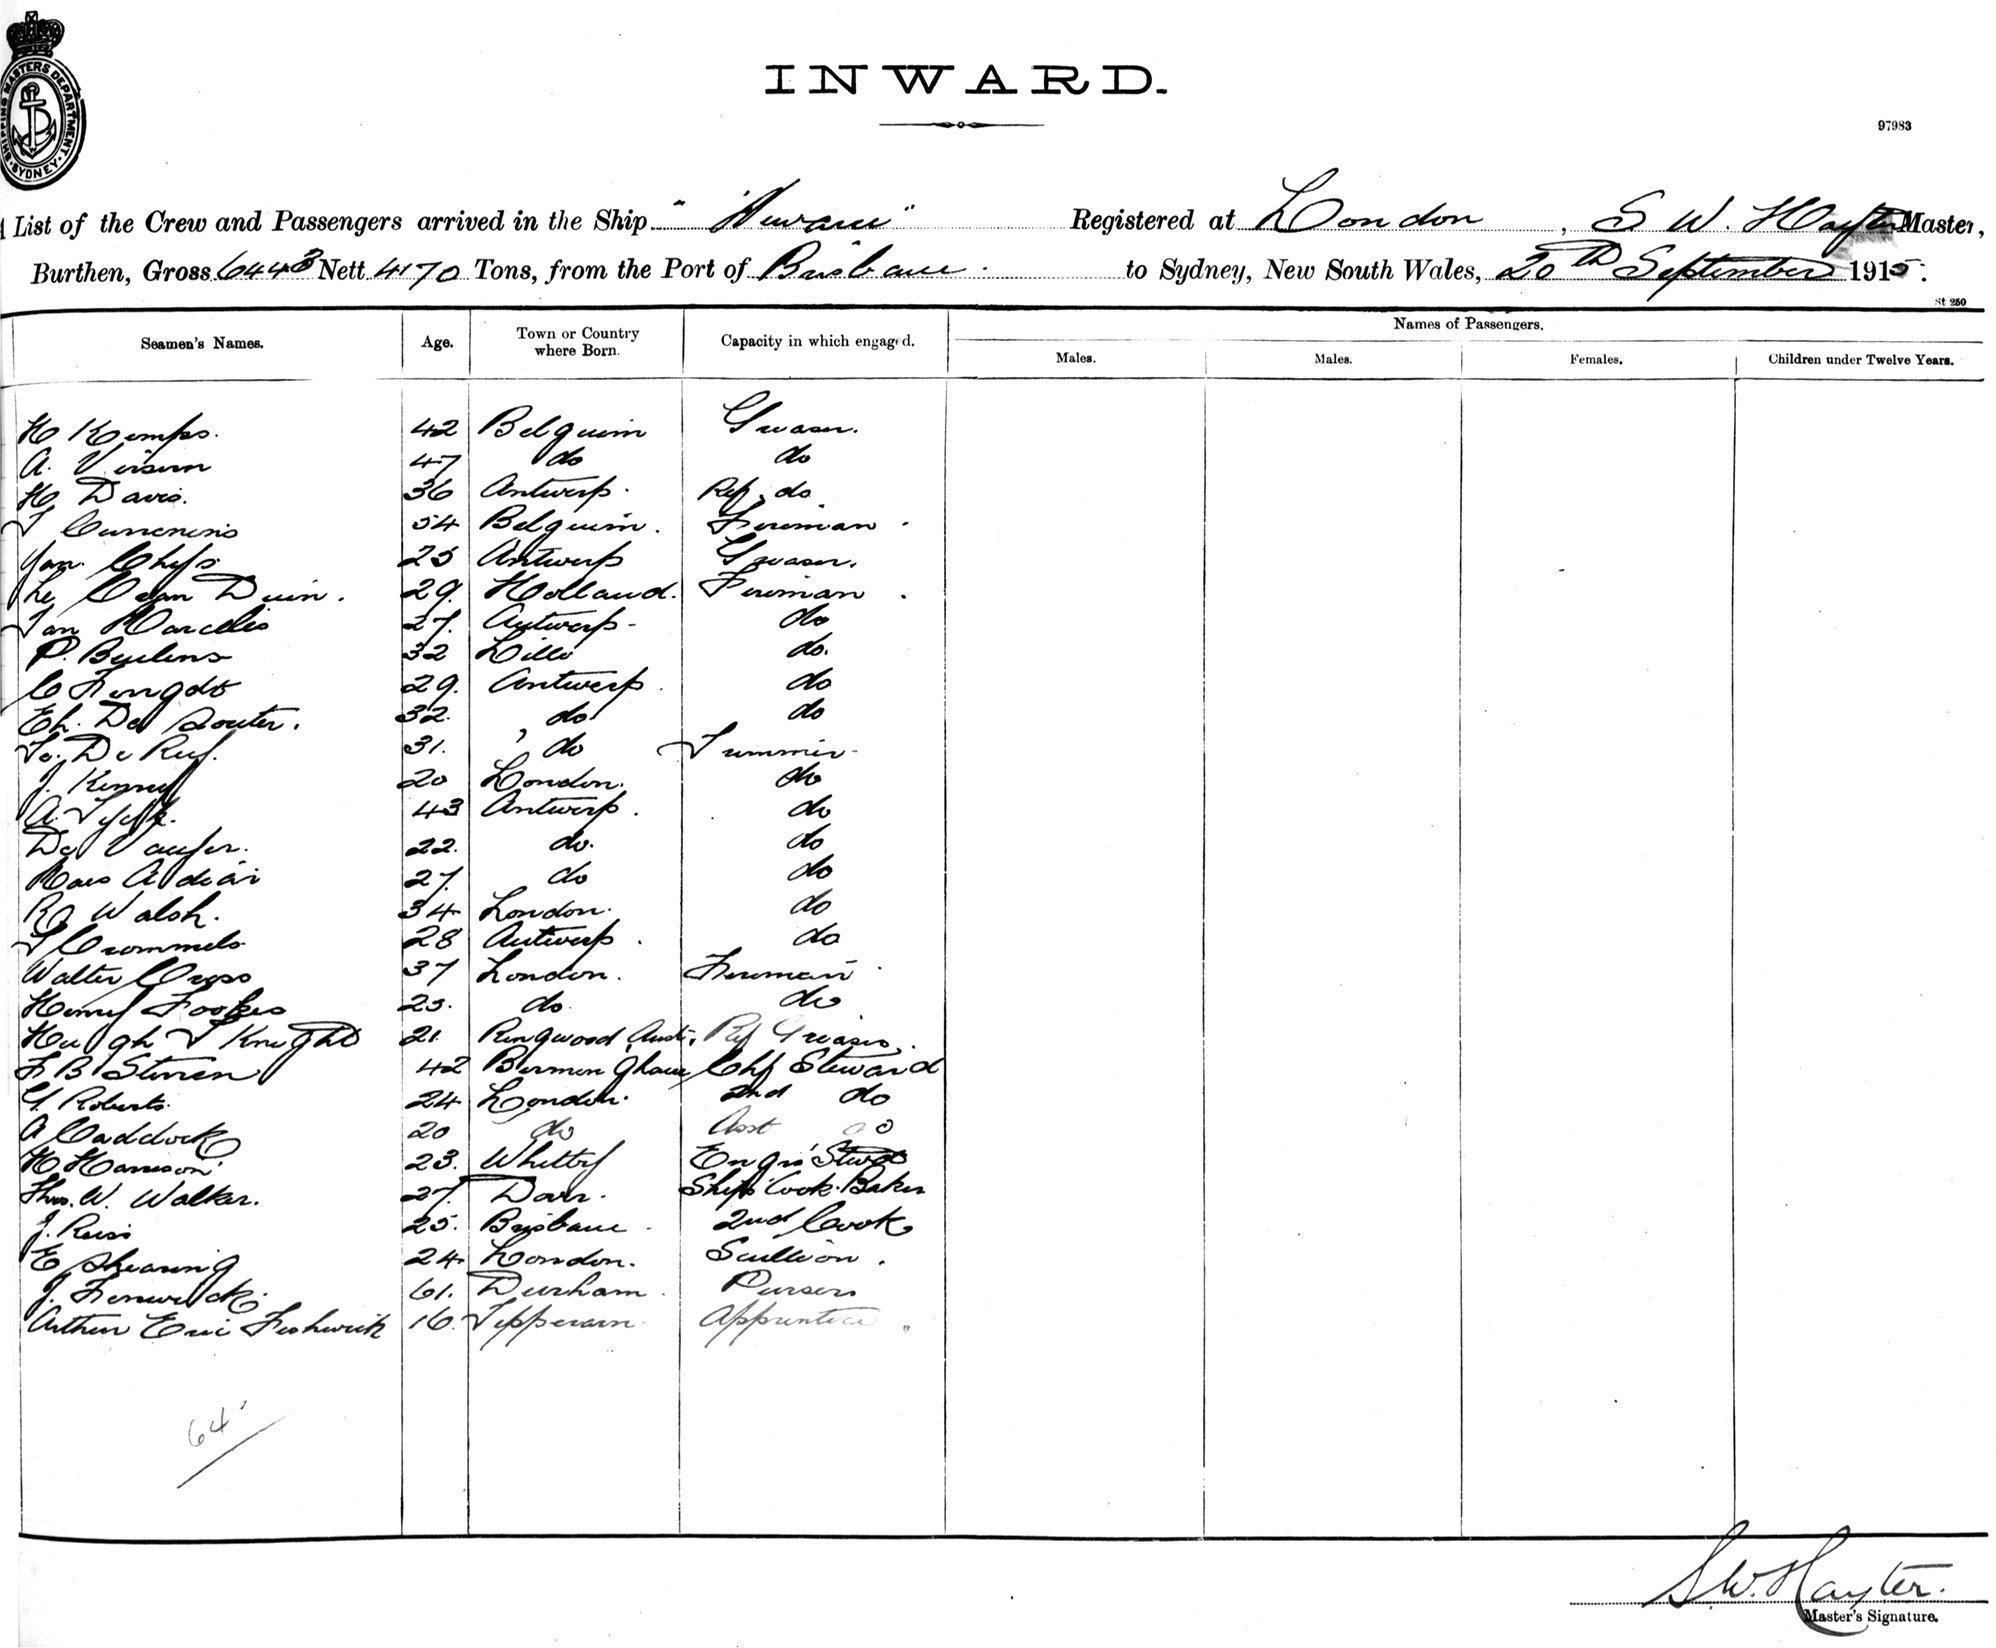 SHIPPING MASTERS DEPARTMENT SYDNEY
INWARD.
97983
List of the Crew and Passengers arrived in the Ship Registered at London, S W. Hayter Master,
Burthen, Gross 6443 Nett 4170 Tons, from the Port of Brisbane. to Sydney, New South Wales, 20TH September 1915.
St 250
Names of Passengers.
Seamen's Names. Age. Town or Country where Born. Capacity in which engaged. Males. Males. Females. Children under Twelve Years.
H Kemps. 42 Belguim Greaser.
A. 47 do do
H Davis. 36 Antwerp. Ref. do
54 Belguim. Fireman.
Jan 25 Antwerp Greaser.
Duin. 29. Holland. Fireman.
Jan Marcelis 27. Antwerp- do
P. 32 Lillo do.
C 29. Antwerp. do
De Souter. 32. do do
De 31. do Trimmer-
J. 20 London. do
A. 43 Antwerp. do
De 22. do. do
27. do do
R Walsh. 34 London. do
Crommels 28 Antwerp. do
Walter Cross 37 London. Fireman.
Henry Fookes 25. do. do
Hugh T Knight 21. Ringwood Aust. Ref Greaser.
F B 42 Birmingham Chf Steward
G. Roberts. 24 London. 2nd do
A Caddock 20 do Asst do
H Harrison. 23. Whitby Engrs Stwd
Thos. W. Walker. 27. Dover. Ships Cook. Baker
J. 25. Brisbane. 2nd Cook
E Shearing 24 London. Scullion.
J. Fenwick. 61. Durham. Purser
Arthur Eric Fishwick 16. Apprentice.
64
S.W. Hayter.
Master's Signature.